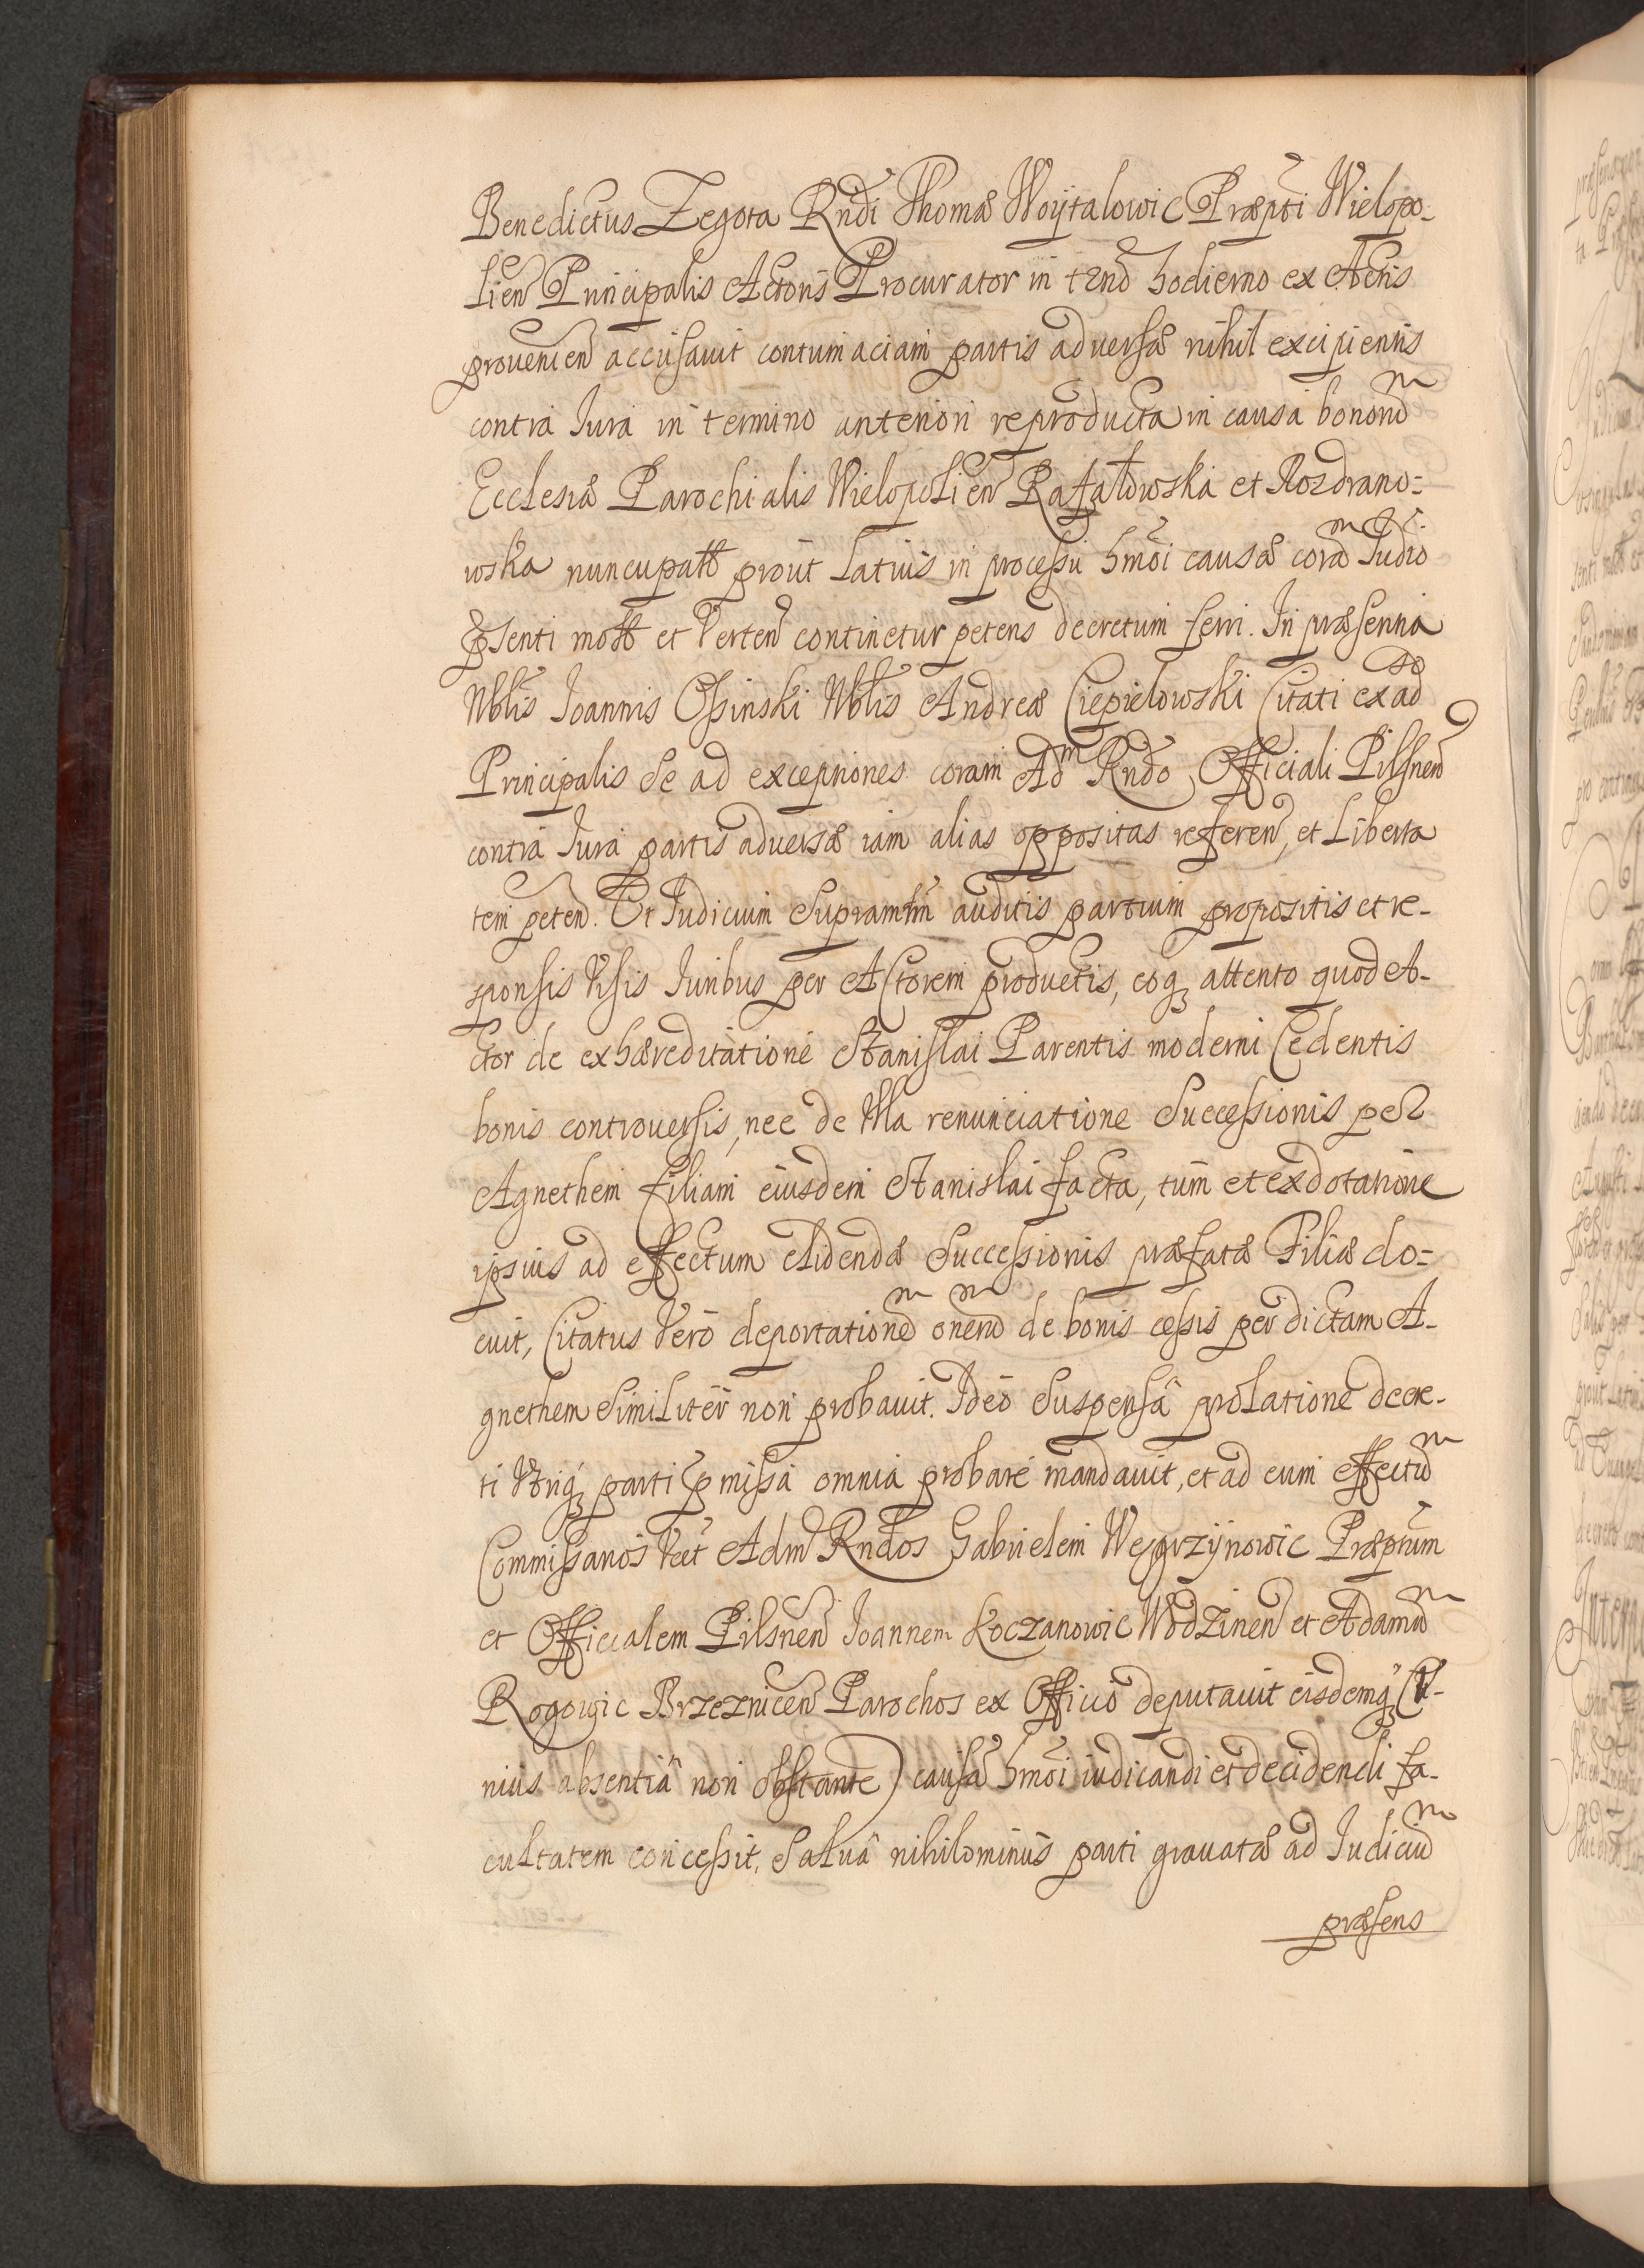 Benedictus Zegota Rndi Thomæ Woytalowic Præpti Wielopo-
lien Principalis Actoris Procurator in trno hodierno ex Actis
prouenien accusauit contumaciam partis aduersæ nihil excipientis
contra Iura in termino anteriori reproducta in causa bonorum
Ecclesiæ Parochialis Wielopolien Rafałowska et Rozdrano=
wska nuncupatt prout latius in processu hmoi causæ coram Iudio
pṡenti mott et Verten continetur petens decretum ferri. In præsentia
Nblis Ioannis Ossinski Nblis Andreæ Ciepielowski Citati ex adso
Principalis se ad exceptiones coram Adm Rndo Officiali Pilsnen
contra Iura partis aduersæ iam alias oppositas referen, et liberta
tem peten. Et Iudicium Supramtm auditis partium propositis et re-
sponsis Visis Iuribus per Actorem productis, eoq attento quod A-
ctor de exhæreditatione Stanislai Parentis moderni Cedentis
bonis controuersis, nec de Vlla renunciatione Successionis per
Agnethem filiam eiusdem Stanislai facta, tum et exdotatione
ipsius ad effectum elidendæ Successionis præfatæ Filiæ do=
cuit, Citatus Vero deportationem onerum de bonis cessis per dictam A-
gnethem Similiter non probauit. Ideo Suspensâ prolatione decre-
ti Vtriq parti pmissa omnia probare mandauit, et ad eum effectum
Commissarios Vett Adm Rndos Gabrielem Węgrzynowic Præptum
et Officialem Pilsnen Ioannem Koczanowic Wodzinen et Adamum
Rogowic Brzeznicen Parochos ex Officio deputauit eisdemq (V-
nius absentiâ non obstante) causam hmoi iudicandi et decidendi fa-
cultatem concessit, Saluâ nihilominus parti grauatæ ad Iudicium
præsens